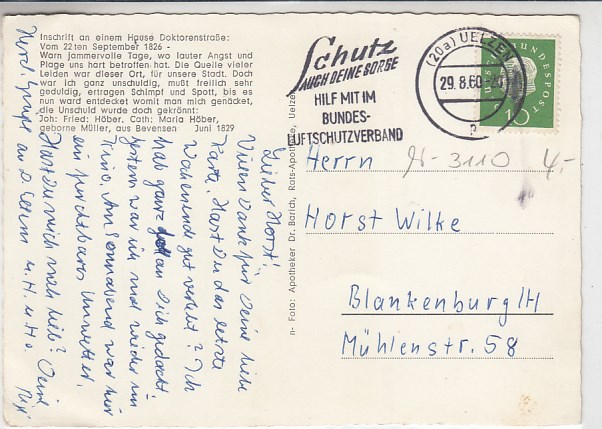 Inschrift an einem Hause Doktorenstraße:
Vom 22ten September 1826 -
Warn jammervolle Tage, wo lauter Angst und
Plage uns hart betroffen hat. Die Quelle vieler
Leiden war dieser Ort, für unsere Stadt. Doch
war ich ganz unschuldig, mußt freilich sehr
geduldig, ertragen Schimpf und Spott, bis es
nun ward entdecket womit man mich genäcket,
die Unschuld wurde doch gekrönt:
Joh: Fried: Höber. Cath: Maria Höber,
geborne Müller, aus Bevensen Juni 1829
Schutz
AUCH DEINE SORGE
HILF MIT IM
BUNDES-
LUFTSCHUTZVERBAND
(20a) UELZEN
29. 8. 60
DEUTSCHE BUNDESPOST
10
N-3110 4,-
Lieber Horst!
Vielen Dank für Deine liebe
Karte. Hast Du das letzte
Wochenend gut verlebt? Ich
hab ganz doll an Dich gedacht.
Gestern war ich mal wieder im
Kino. Am Sonnabend war hier
ein furchtbares Unwetter.
Hast Du mich noch lieb? Deine
Herzl. Grüße an D. Eltern u. H. u. Ho.
Herrn
Horst Wilke
Blankenburg/H
Mühlenstr. 58
n- Foto: Apotheker Dr. Barich, Rats-Apotheke, Uelzen